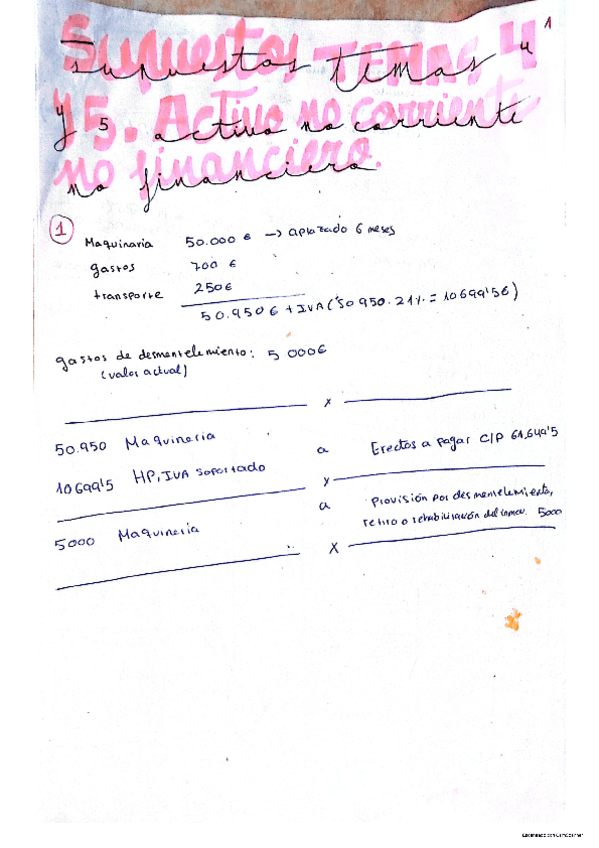 1
Supuestos temas 4
y 5. Activo no corriente
no financiero.
1 Maquinaria 50.000 € → aplazado 6 meses
gastos 700 €
transporte 250€
50.950€ + IVA (50 950.21% = 10699'5€)
gastos de desmantelamiento: 5 000€
(valor actual)
x
50.950 Maquinaria
10699'5 HP, IVA soportado a Efectos a pagar C/P 61,649'5
x
5000 Maquinaria a Provisión por desmantelamiento,
retiro o rehabilitación del inmov. 5000
x